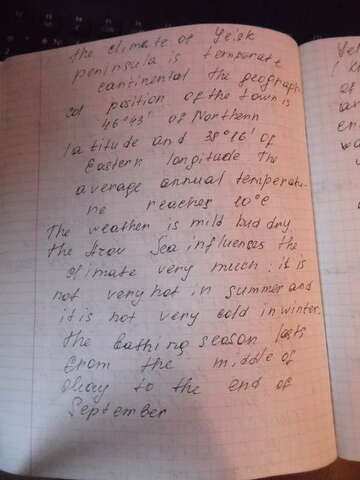 the climate of Yeisk
peninsula is temperate
continental the geographi
cal position of the town is
46°43' of Northern
latitude and 38°16' of
Eastern longitude The
average annual temperatu-
re reaches 10°C
The weather is mild but dry
the Azov Sea influences the
climate very much: it is
not very hot in summer and
it is not very cold in winter.
the bathing season lasts
from the middle of
May to the end of
September